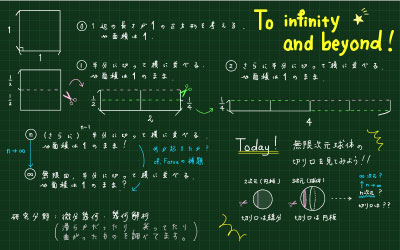 To infinity
and beyond!
⓪ 1辺の長さが1の正方形を考える。
⇝面積は1.
1
1
① 半分に切って横に並べる。
⇝面積は1のまま.
② さらに半分に切って横に並べる。
⇝面積は1のまま.
1/2
1/2
1/2
2
1/4
1/4
4
n-1
ⓝ (さらに) 半分に切って横に並べる.
⇝面積は1のまま!
n→∞
∞ 無限回、半分に切って横に並べる.
⇝面積は1のまま?
何が起きたか?
cf. Forceの積
Today!
無限次元球体の
切り口を見てみよう!!
2次元(円板)
3次元(球体)
切り口は線分
切り口は円板
∞次元?
↑n→∞
n次元?
切り口は??
研究分野:微分幾何・幾何解析
(滑らかだったり、尖ってたり
曲がったものを調べてます。)